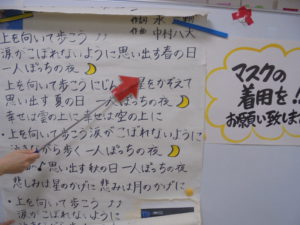 作詞 永
作曲 中村八大
上を向いて歩こう
涙がこぼれないように
思い出す春の日
一人ぼっちの夜
上を向いて歩こう にじんだ星をかぞえて
思い出す夏の日 一人ぼっちの夜
幸せは雲の上に 幸せは空の上に
・上を向いて歩こう 涙がこぼれないように
ながら歩く 一人ぼっちの夜
思い出す秋の日 一人ぼっちの夜
悲しみは星のかげに 悲しみは月のかげに
・上を向いて歩こう
涙がこぼれないように
マスクの
着用を!!
お願い致します